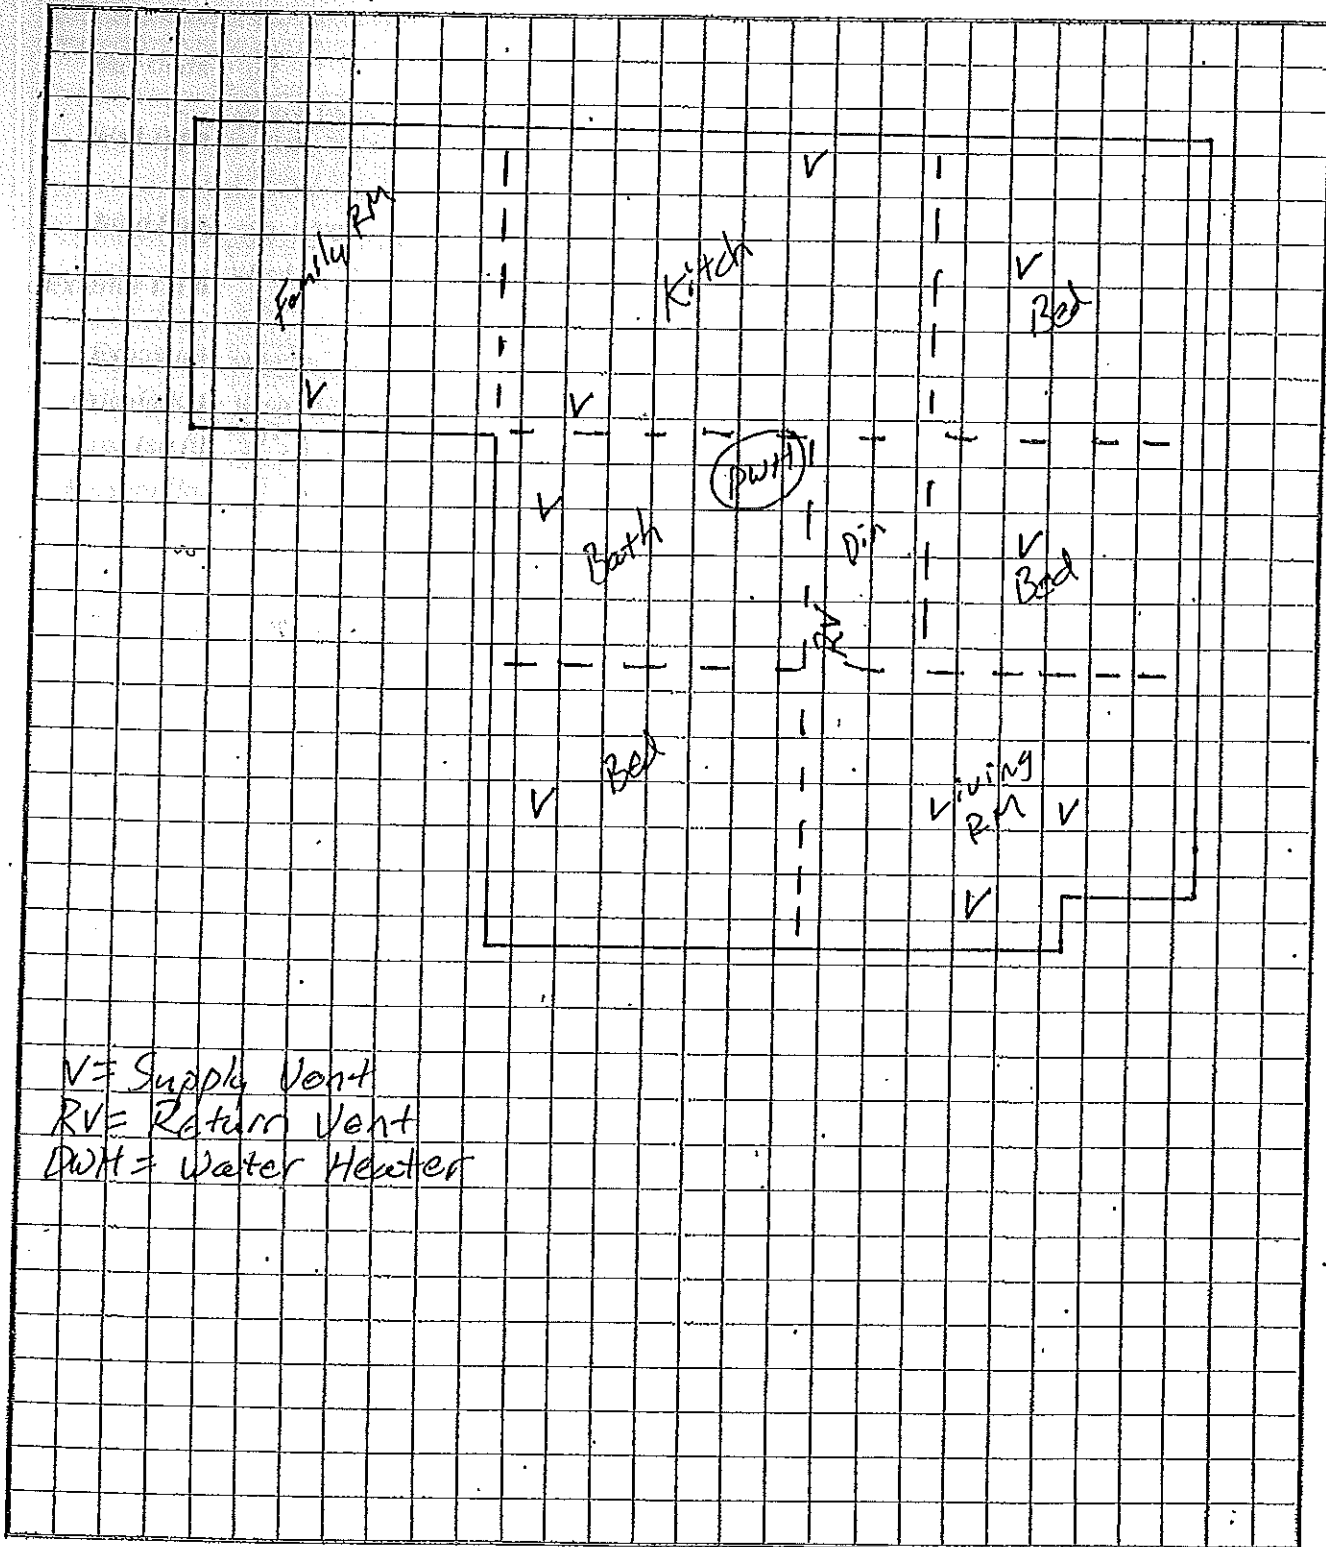 V
Family RM
Kitch
V
Bed
V
V
DWH
V
Bath
Din
V
Bed
RV
Bed
V
Living
RM
V
V
V= Supply Vent
RV= Return Vent
DWH= Water Heater